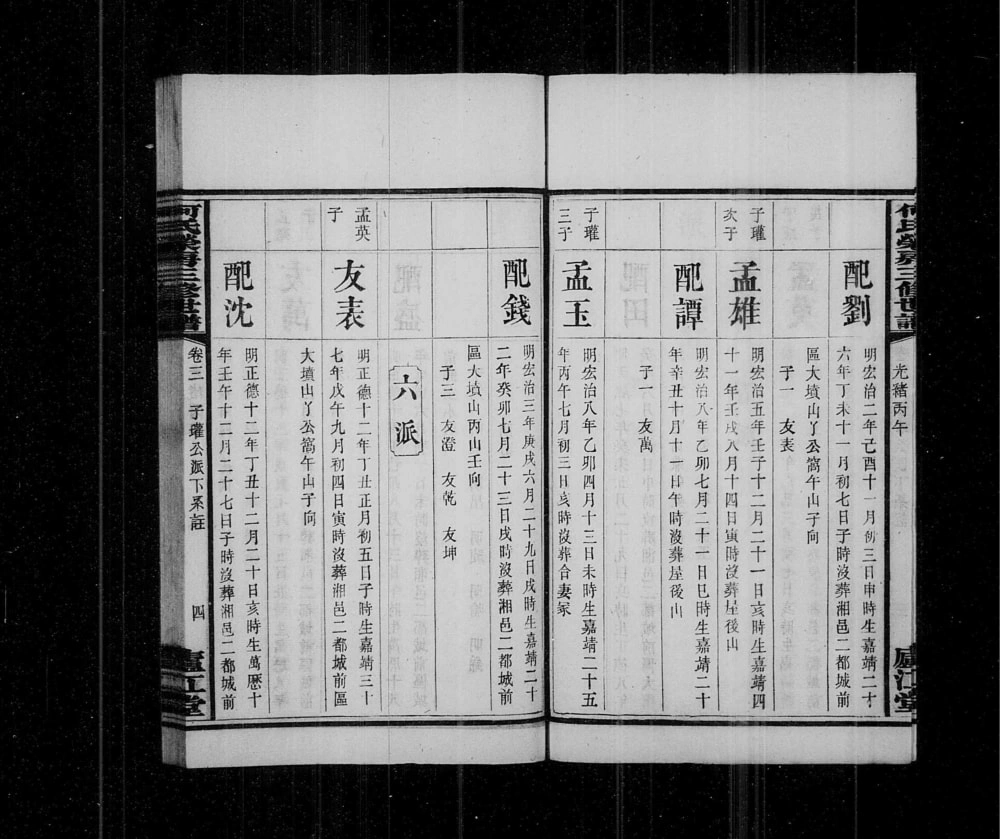 何氏榮房三修世譜
光緒丙午
廬江堂
配劉
明宏治二年己酉十一月初三日申時生嘉靖二十
六年丁未十一月初七日子時沒葬湘邑二都城前
區大墳山丫公窩午山子向
子一　友表
子瓘
次子
孟雄
明宏治五年壬子十二月二十一日亥時生嘉靖四
十一年壬戌八月十四日寅時沒葬屋後山
配譚
明宏治八年乙卯七月二十一日巳時生嘉靖二十
年辛丑十月十一日午時沒葬屋後山
子一　友萬
子瓘
三子
孟玉
明宏治八年乙卯四月十三日未時生嘉靖二十五
年丙午七月初三日亥時沒葬合妻冢
配錢
明宏治三年庚戌六月二十九日戌時生嘉靖二十
二年癸卯七月二十三日戌時沒葬湘邑二都城前
區大墳山丙山壬向
子三　友澄　友乾　友坤
六派
孟英
子
友表
明正德十二年丁丑正月初五日子時生嘉靖三十
七年戊午九月初四日寅時沒葬湘邑二都城前區
大墳山丫公窩午山子向
配沈
明正德十二年丁丑十二月二十日亥時生萬歷十
年壬午十二月二十七日子時沒葬湘邑二都城前
何氏榮房三修世譜
卷三　子瓘公派下系註
四
廬江堂